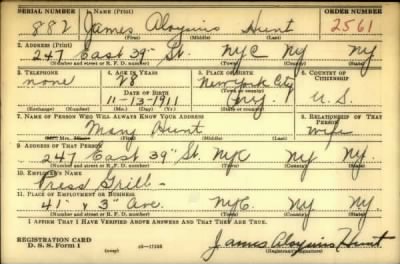 SERIAL NUMBER 1. NAME (Print) ORDER NUMBER
882 James Aloysius Hunt 2561
(First) (Middle) (Last)
2. ADDRESS (Print)
247 East 39" St. NYC NY NY
(Number and street or R. F. D. number) (Town) (County) (State)
3. TELEPHONE 4. AGE IN YEARS 5. PLACE OF BIRTH 6. COUNTRY OF CITIZENSHIP
none 28 New York City
DATE OF BIRTH (Town or county)
11-13-1911 NY. U.S.
(Exchange) (Number) (Mo.) (Day) (Yr.) (State or country)
7. NAME OF PERSON WHO WILL ALWAYS KNOW YOUR ADDRESS 8. RELATIONSHIP OF THAT PERSON
Mary Hunt wife
(First) (Middle) (Last)
9. ADDRESS OF THAT PERSON
247 East 39" St. NYC NY NY.
(Number and street or R. F. D. number) (Town) (County) (State)
10. EMPLOYER'S NAME
Press Grill
11. PLACE OF EMPLOYMENT OR BUSINESS
41" & 3" Ave. NYC. NY NY
(Number and street or R. F. D. number) (Town) (County) (State)
I AFFIRM THAT I HAVE VERIFIED ABOVE ANSWERS AND THAT THEY ARE TRUE.
REGISTRATION CARD
D. S. S. Form 1 (over) James Aloysius Hunt
(Registrant's signature)